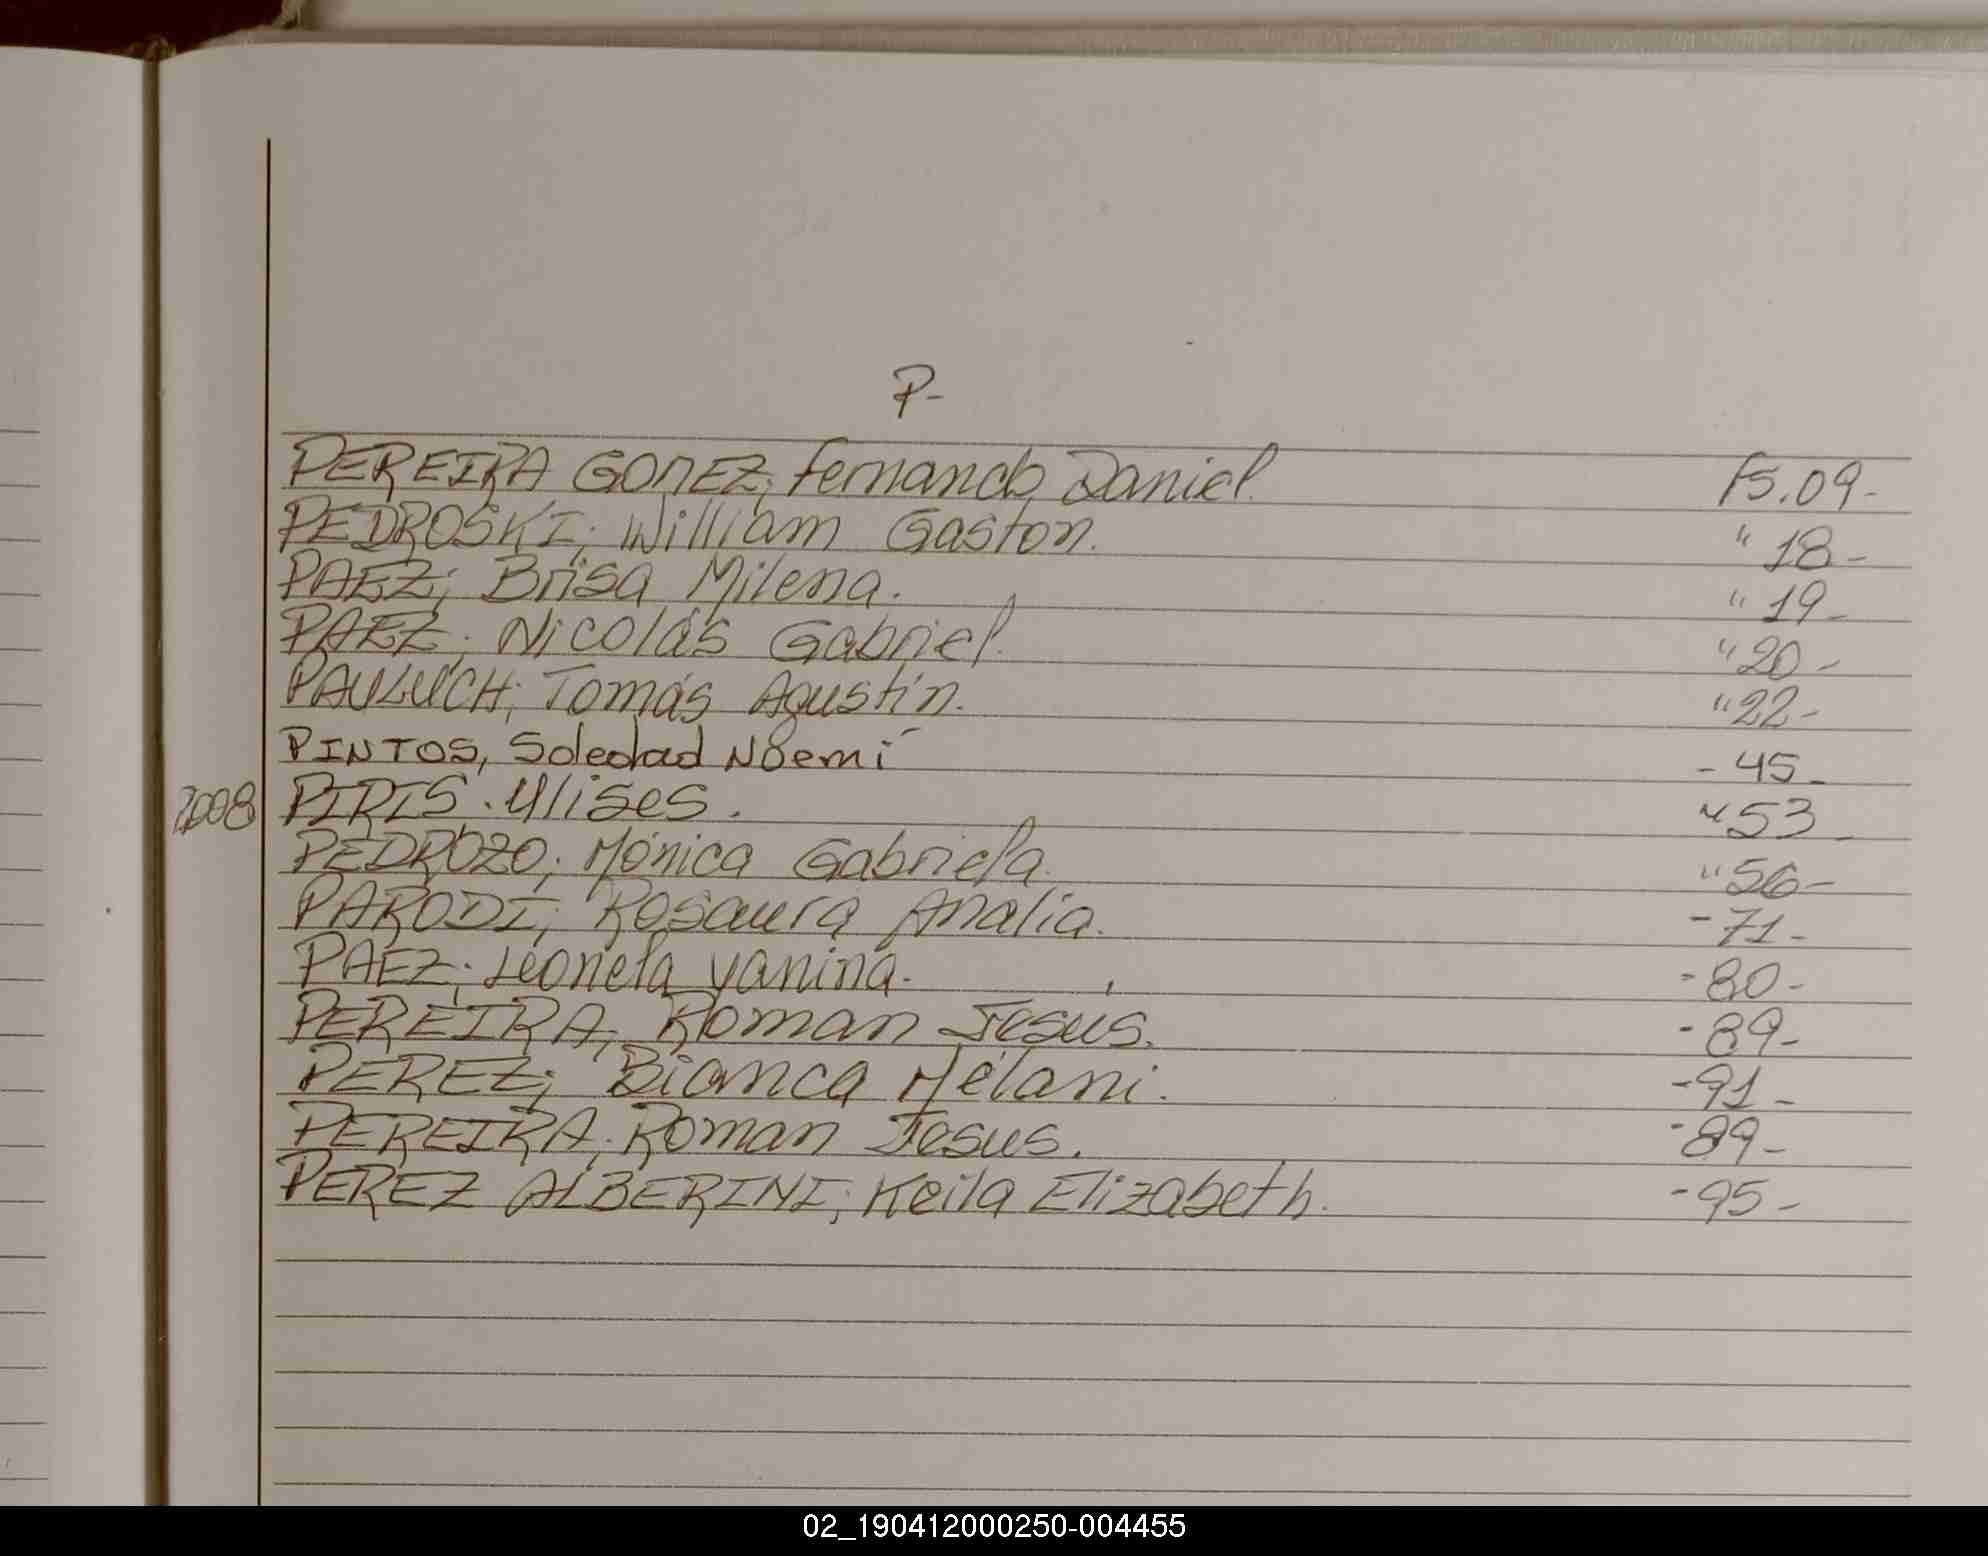 P-
PEREIRA GOMEZ, Fernando Daniel. Fs. 09-
PEDROSKI; William Gaston. " 18-
PAEZ; Brisa Milena. " 19-
PAEZ; Nicolás Gabriel. " 20-
PAULUCH; Tomás Agustín. " 22-
PINTOS, Soledad Noemí - 45-
2008 PIRIS. Ulises. " 53-
PEDROZO; Mónica Gabriela. " 56-
PARODI; Rosaura Analia. - 71-
PAEZ; Leonela Yanina. - 80-
PEREIRA; Roman Jesus. - 89-
PEREZ; Bianca Melani. - 91-
PEREIRA; Roman Jesus. - 89-
PEREZ ALBERINI; Keila Elizabeth. - 95-
02_190412000250-004455